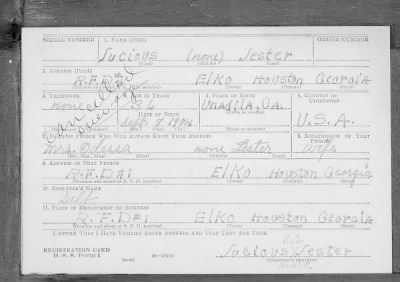 SERIAL NUMBER 1. NAME (Print) ORDER NUMBER
Lucious (none) Lester
(First) (Middle) (Last)
2. ADDRESS (Print)
R.F.D. 1 Elko Houston Georgia
(Number and street or R.F.D. number) (Town) (County) (State)
3. TELEPHONE 4. AGE IN YEARS 5. PLACE OF BIRTH 6. COUNTRY OF CITIZENSHIP
none 36 Unadilla, Ga. U.S.A.
DATE OF BIRTH
Sept. 8 1904
Cancelled
7. NAME OF PERSON WHO WILL ALWAYS KNOW YOUR ADDRESS 8. RELATIONSHIP OF THAT PERSON
Mrs. Odessa none Lester Wife
9. ADDRESS OF THAT PERSON
R.F.D #1 Elko Houston Georgia
(Number and street or R.F.D. number) (Town) (County) (State)
10. EMPLOYER'S NAME
Self
11. PLACE OF EMPLOYMENT OR BUSINESS
R.F.D #1 Elko Houston Georgia
(Number and street or R.F.D. number) (Town) (County) (State)
I AFFIRM THAT I HAVE VERIFIED ABOVE ANSWERS AND THAT THEY ARE TRUE.
REGISTRATION CARD
D. S. S. FORM 1
his
Lucious Lester
(Registrant's signature)
mark